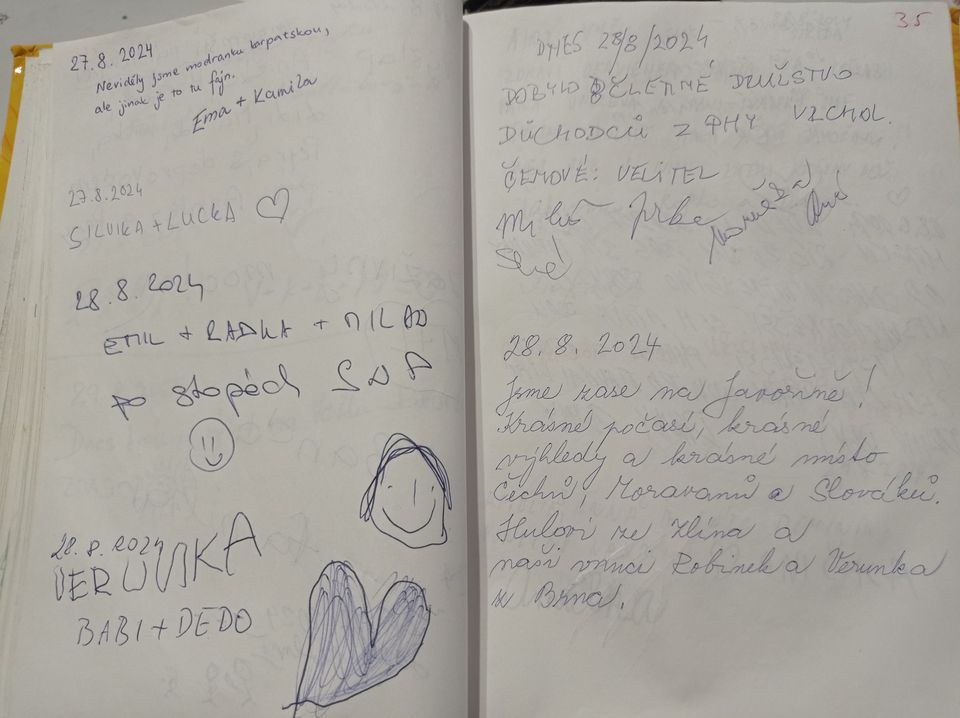 27.8.2024
Neviděly jsme modranku karpatskou,
ale jinak je to tu fajn.
Ema + Kamila
27.8.2024
SILVIKA + LUCKA
28.8.2024
EMIL + RADKA + MILAN
po stopách SNP
28.8.2024
VERUNKA
BABI + DEDO
35
DNES 28/8/2024
DOBYLO 8 ČLENNÉ DRUŽSTVO
DŮCHODCŮ Z PHY VRCHOL.
ČLENOVÉ: VELITEL
28.8.2024
Jsme zase na Javořině!
Krásné počasí, krásné
výhledy a krásné místo
Čechů, Moravanů a Slováků.
Hulovi ze Zlína a
naši vnuci Robinek a Verunka
z Brna.